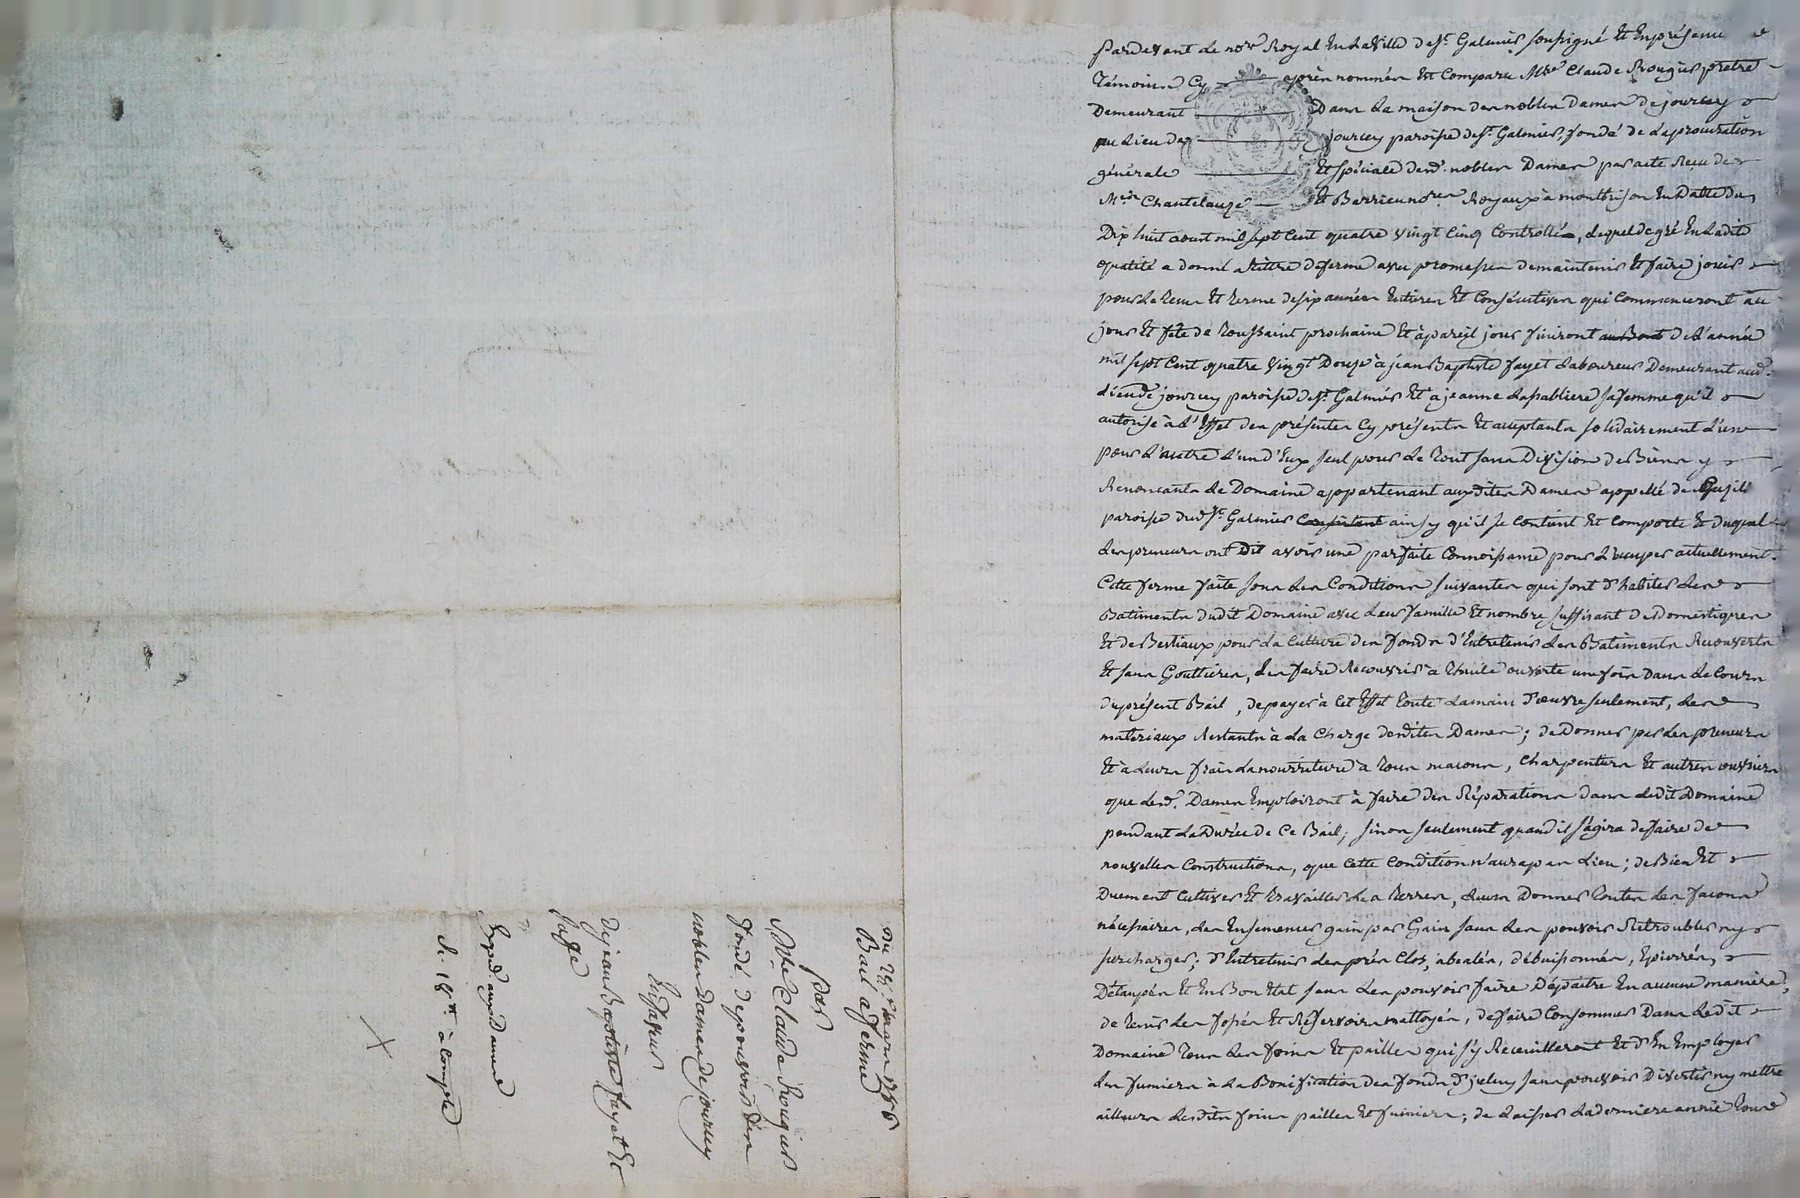 Pardevant Le no.re Royal En La Ville de St. Galmier soussigné Et En présence
Témoins Cy après nommés Est Comparu M.re Claude Rougier prêtre
Demeurant Dans La maison des nobles Dames de jourcey
au Lieu de jourcey paroisse de St. Galmier, fondé de La procuration
générale Et spéciale desd. nobles Dames par acte Reçu de
M.es Chantelauze Et Barrieu no.res Royaux à montbrison En Datte du
Dix huit aout mil sept Cent quatre vingt Cinq Controllé, Lequel de gré En Ladite
qualité a donné a titre de ferme avec promesses de maintenir Et faire jouir
pour Le tems Et terme de six années Entieres Et Consécutives qui Commenceront au
jour Et fête de Toussaint prochaine Et à pareil jour finiront de L'année
mil sept Cent quatre vingt Douze à jean Baptiste fayet Laboureur Demeurant aud.
Lieu de jourcey paroisse de St. Galmier Et à jeanne Lasabliere sa femme qu'il
autorise à L'Effet des présentes Cy présents Et acceptants solidairement L'une
pour L'autre L'un d'Eux seul pour Le tout sans Division de Biens y
Renonçants Le Domaine appartenant auxdites Dames appellé de
paroisse dud. St. Galmier ainsy qu'il se Contient Et Comporte Et duquel
Les preneurs ont Dit avoir une parfaite Connoissance pour L'occuper actuellement.
Cette ferme faite sous Les Conditions suivantes qui sont d'habiter Les
Batiments dudit Domaine avec Leur famille Et nombre suffisant de Domestiques
Et de Bestiaux pour La Culture des fonds d'Entretenir Les Batiments Recouverts
Et sans Gouttieres, Les faire Recouvrir à Thuile ouverte une fois Dans Le Cours
du présent Bail, de payer à Cet Effet toute La main d'œuvre seulement, Les
materiaux Restants à La Charge desdites Dames; de Donner par Les preneurs
Et à Leurs frais La nourriture à tous maçons, Charpentiers Et autres ouvriers
que Lesd. Dames Emploiront à faire des Réparations dans Ledit Domaine
pendant La Durée de Ce Bail, sinon seulement quand il s'agira de faire de
nouvelles Constructions, que Cette Condition n'aura pas Lieu; de Bien Et
Duement Cultiver Et travailler Les terres, Leurs Donner toutes Les façons
nécessaires, Les Ensemencer gain par Gain sans Les pouvoir Retroubler ny
surcharger; d'Entretenir Les prés Clos, abealés, débuissonnés, Epierrés,
Détaupés Et En Bon Etat sans Les pouvoir faire Dépaitre En aucune maniere,
de tenir Les fossés Et Réservoirs nattoyés, de faire Consommer Dans Ledit
Domaine tous Les foins Et pailles qui s'y Receuilleront Et d'En Employer
Les fumiers à La Bonification des fonds d'jceluy sans pouvoir Divertir ny mettre
ailleurs Lesdits foins pailles Et fumiers; de Laisser La derniere année tous
Du mars 1786
Bail à ferme
par
M.re Claude Rougier
fondé de pouvoir des
nobles Dames de jourcey
En faveur
De jean Baptiste fayet Et
sa fe
Exped. auxd. dames
à Compte